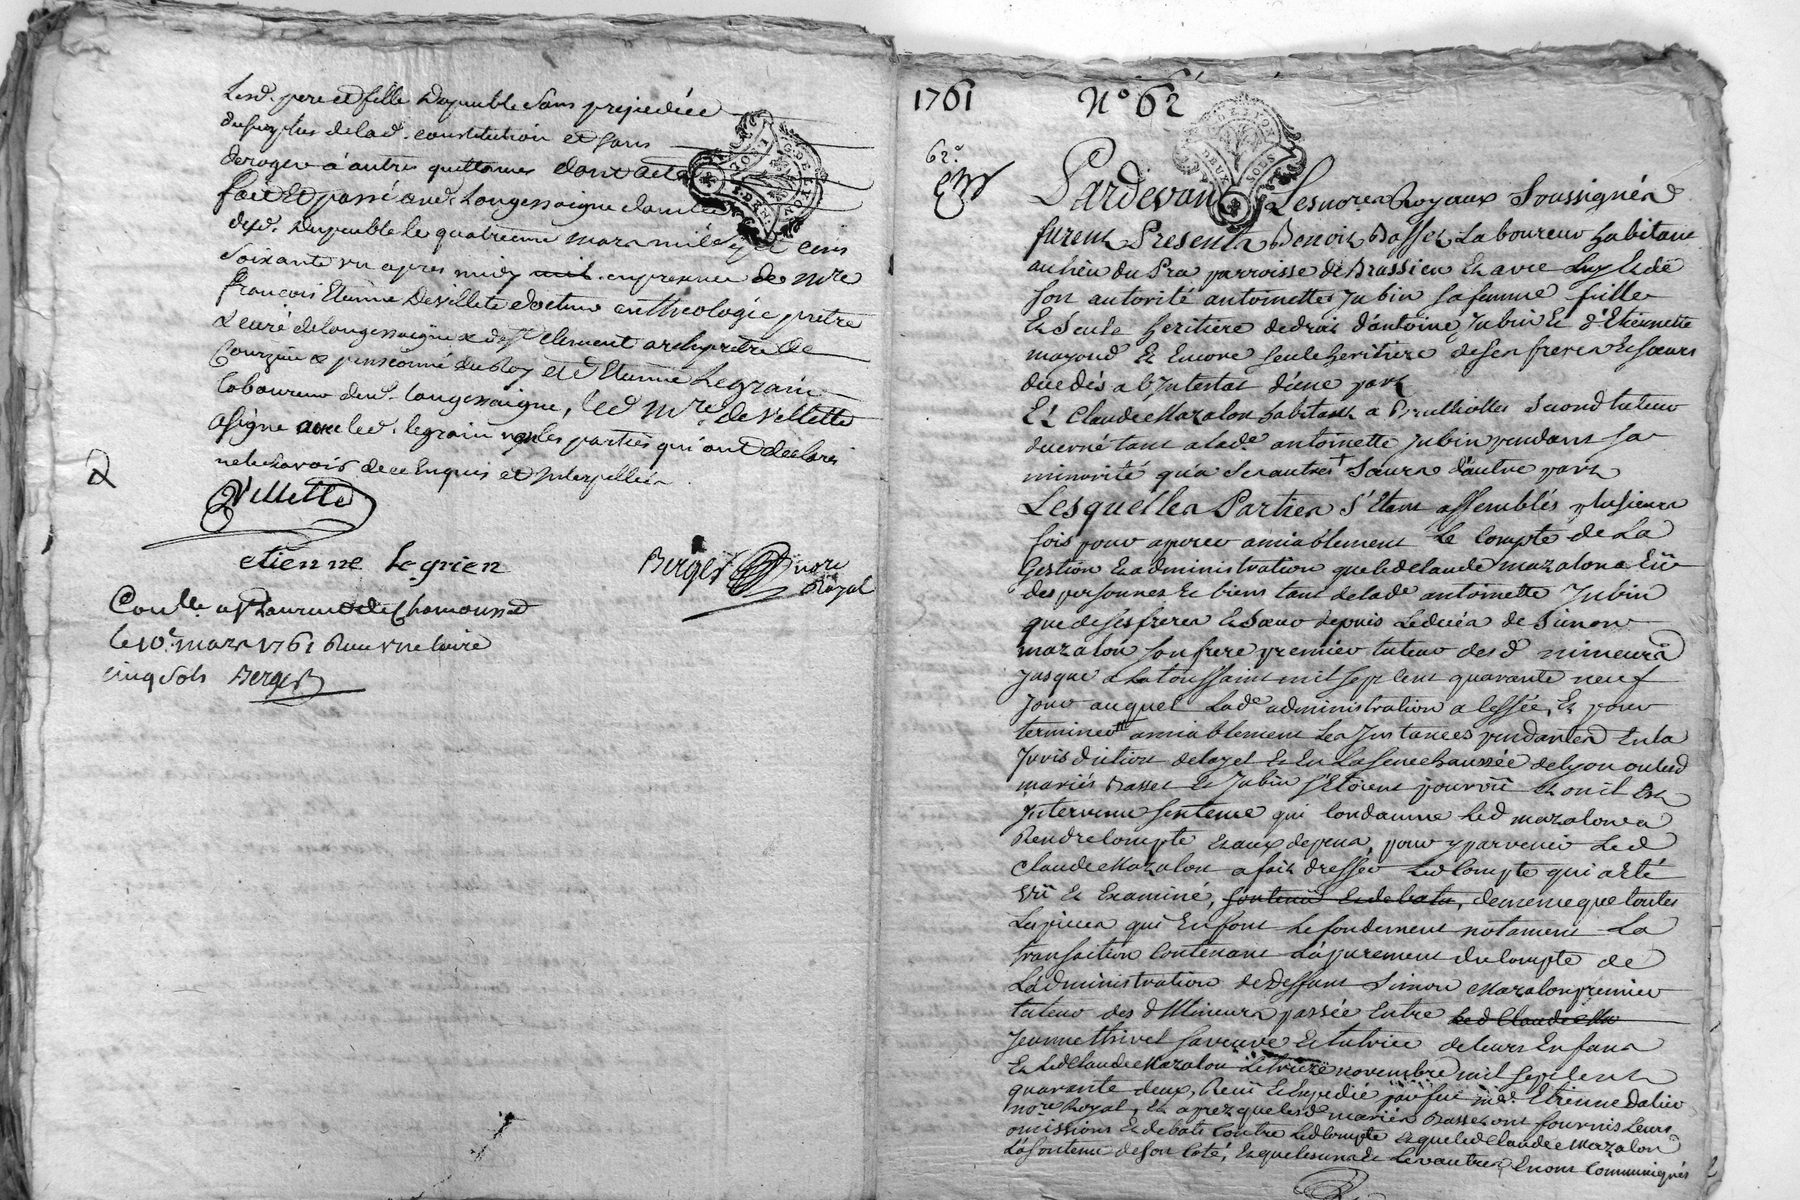 Lesd. pere et fille Dupeuble sans prejudice
du surplus de lad. constitution et sans
deroger a autres quittances dont acte
fait Et passé aud. Longessaigne domicile
dud. Dupeuble le quatrieme mars mil sept cens
soixante un apres midy en presence de mre
françois Etienne Devillete docteur en theologie pretre
& curé de longessaigne & de st clement archipretre de
Courzieu & pensionné du Roy et d Etienne Legrain
laboureur dud. longessaigne, led mre. De Villette
a signe avec led. legrain non les parties qui ont declaré
ne le savoir de ce Enquis et Interpellés
2
Villette
etienne Legrien
Berger nore
Royal
Conlle a st Laurent de Chamousset
le 10e mars 1761 Recu une livre
cinq sols Berger
1761 No 62
62e
G. DE LYON
DEUX SOLS
Pardevant Les nores Royaux Soussignés
furent Presents Benoit Basset Laboureur habitant
au lieu du Pra parroisse de Brussieu Et avec Luy Et de
son autorité antoinette Jubin sa femme fille
Et Seule heritiere de droit d'antoine Jubin Et d'Etiennette
mayoud Et Encore seule heritiere de ses freres Et soeurs
decedés ab Intestat d'une part
Et Claude Mazalon habitant a Brullioles Second tuteur
decerné tant a lade antoinette Jubin pendant sa
minorité qu'a Ses autres Soeurs d'autre part
Lesquelles Parties s'Etant assemblés plusieurs
fois pour apurer amiablement Le Compte de La
Gestion Et administration que led Claude mazalon a Eü
des personnes Et biens tant de lade antoinette Jubin
que de ses freres Et Soeur depuis Le decés de Simon
mazalon son frere premier tuteur desd mineurs
Jusque a La toussaint mil sept Cent quarante neuf
Jour auquel Lade administration a Cessée, Et pour
terminer amiablement Les Instances pendantes En la
Jurisdiction de lozet Et En La Senechaussée de lyon ou lesd
mariés Basset Et Jubin s'Etoient pourvü Et ou il Est
Intervenu sentence qui Condamne Led mazalon a
Rendre Compte Et aux depens, pour y parvenir Led
Claude Mazalon a fait dresser Led Compte qui a Eté
Vü Et Examiné, soutenü Et debatu, de meme que toutes
Les pieces qui En font Le fondement notament La
transaction Contenant L'apurement du Compte de
L'administration de deffunt Simon Mazalon premier
tuteur desd Mineurs passée Entre Led Claude Ma
Jeanne thivel sa veuve Et tutrice de leurs Enfans
Et Led Claude Mazalon Le treize novembre mil sept Cent
quarante deux, Reçü Et Expedié par feu me. Etienne Dalier
nore Royal, Et apres que lesd mariés Basset ont fournis Leurs
omissions Et debats Contre Led Compte Et que led Claude Mazalon
L'a soutenu de son Coté, Et que les uns Et Les autres En ont Communiqués